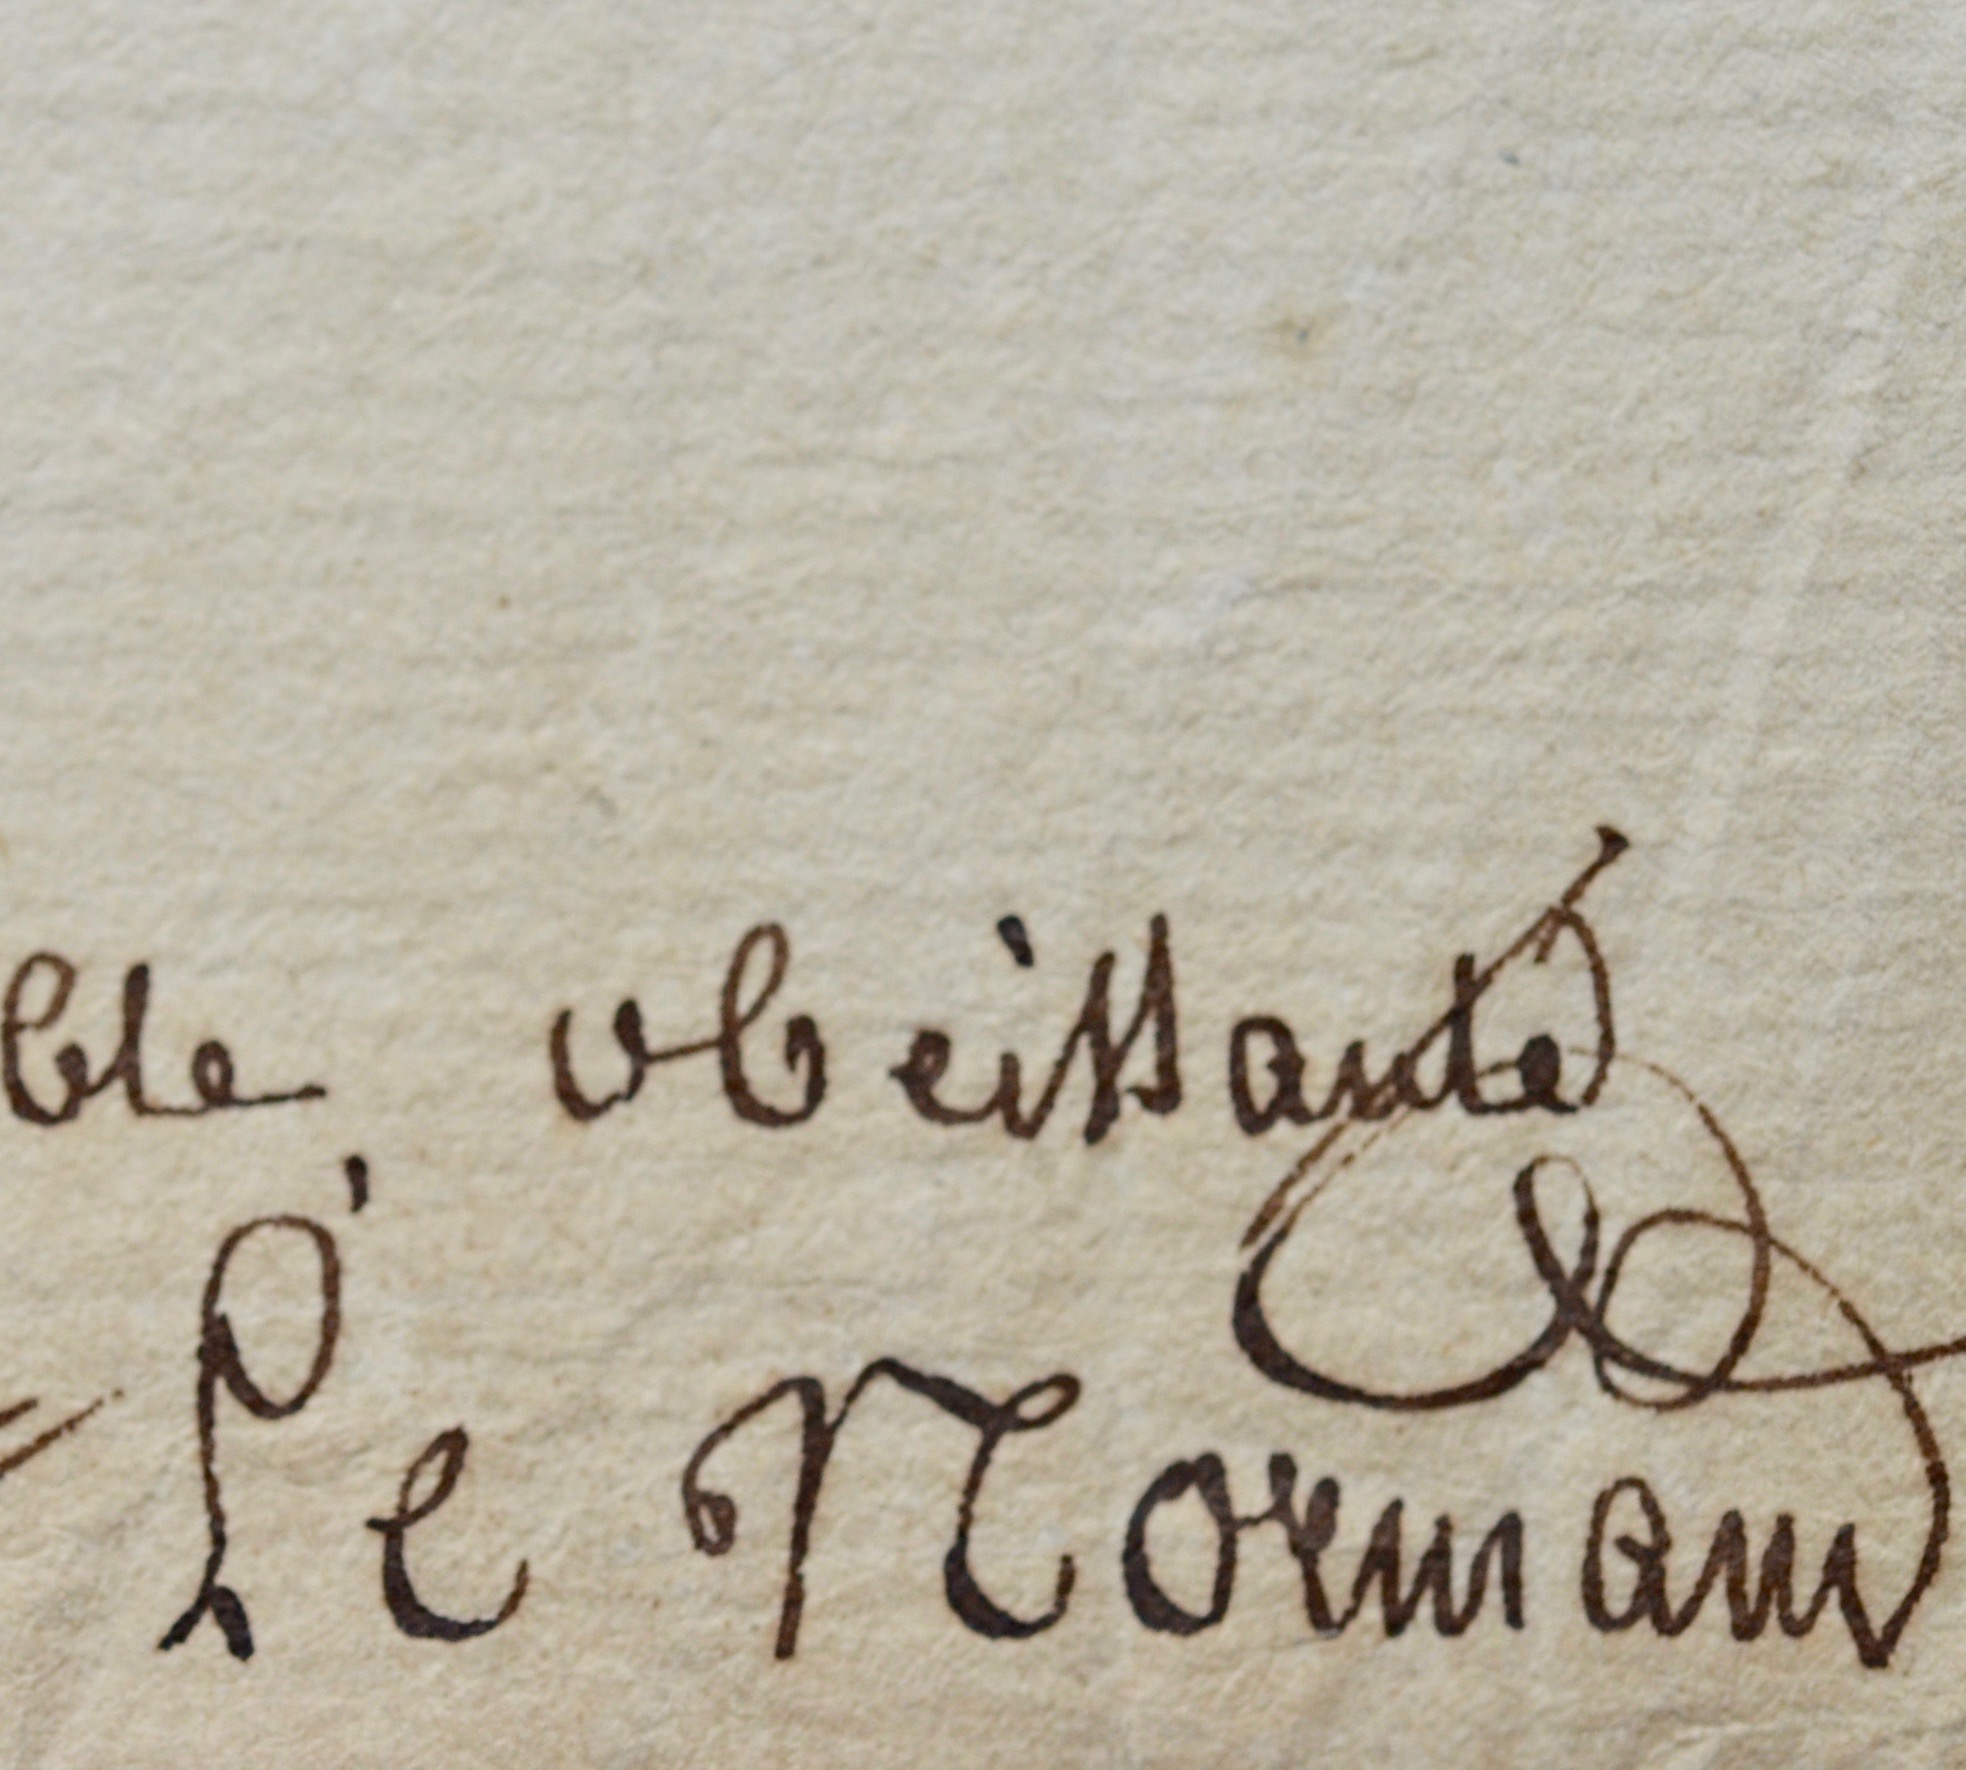 ble obeissante
Le Normand